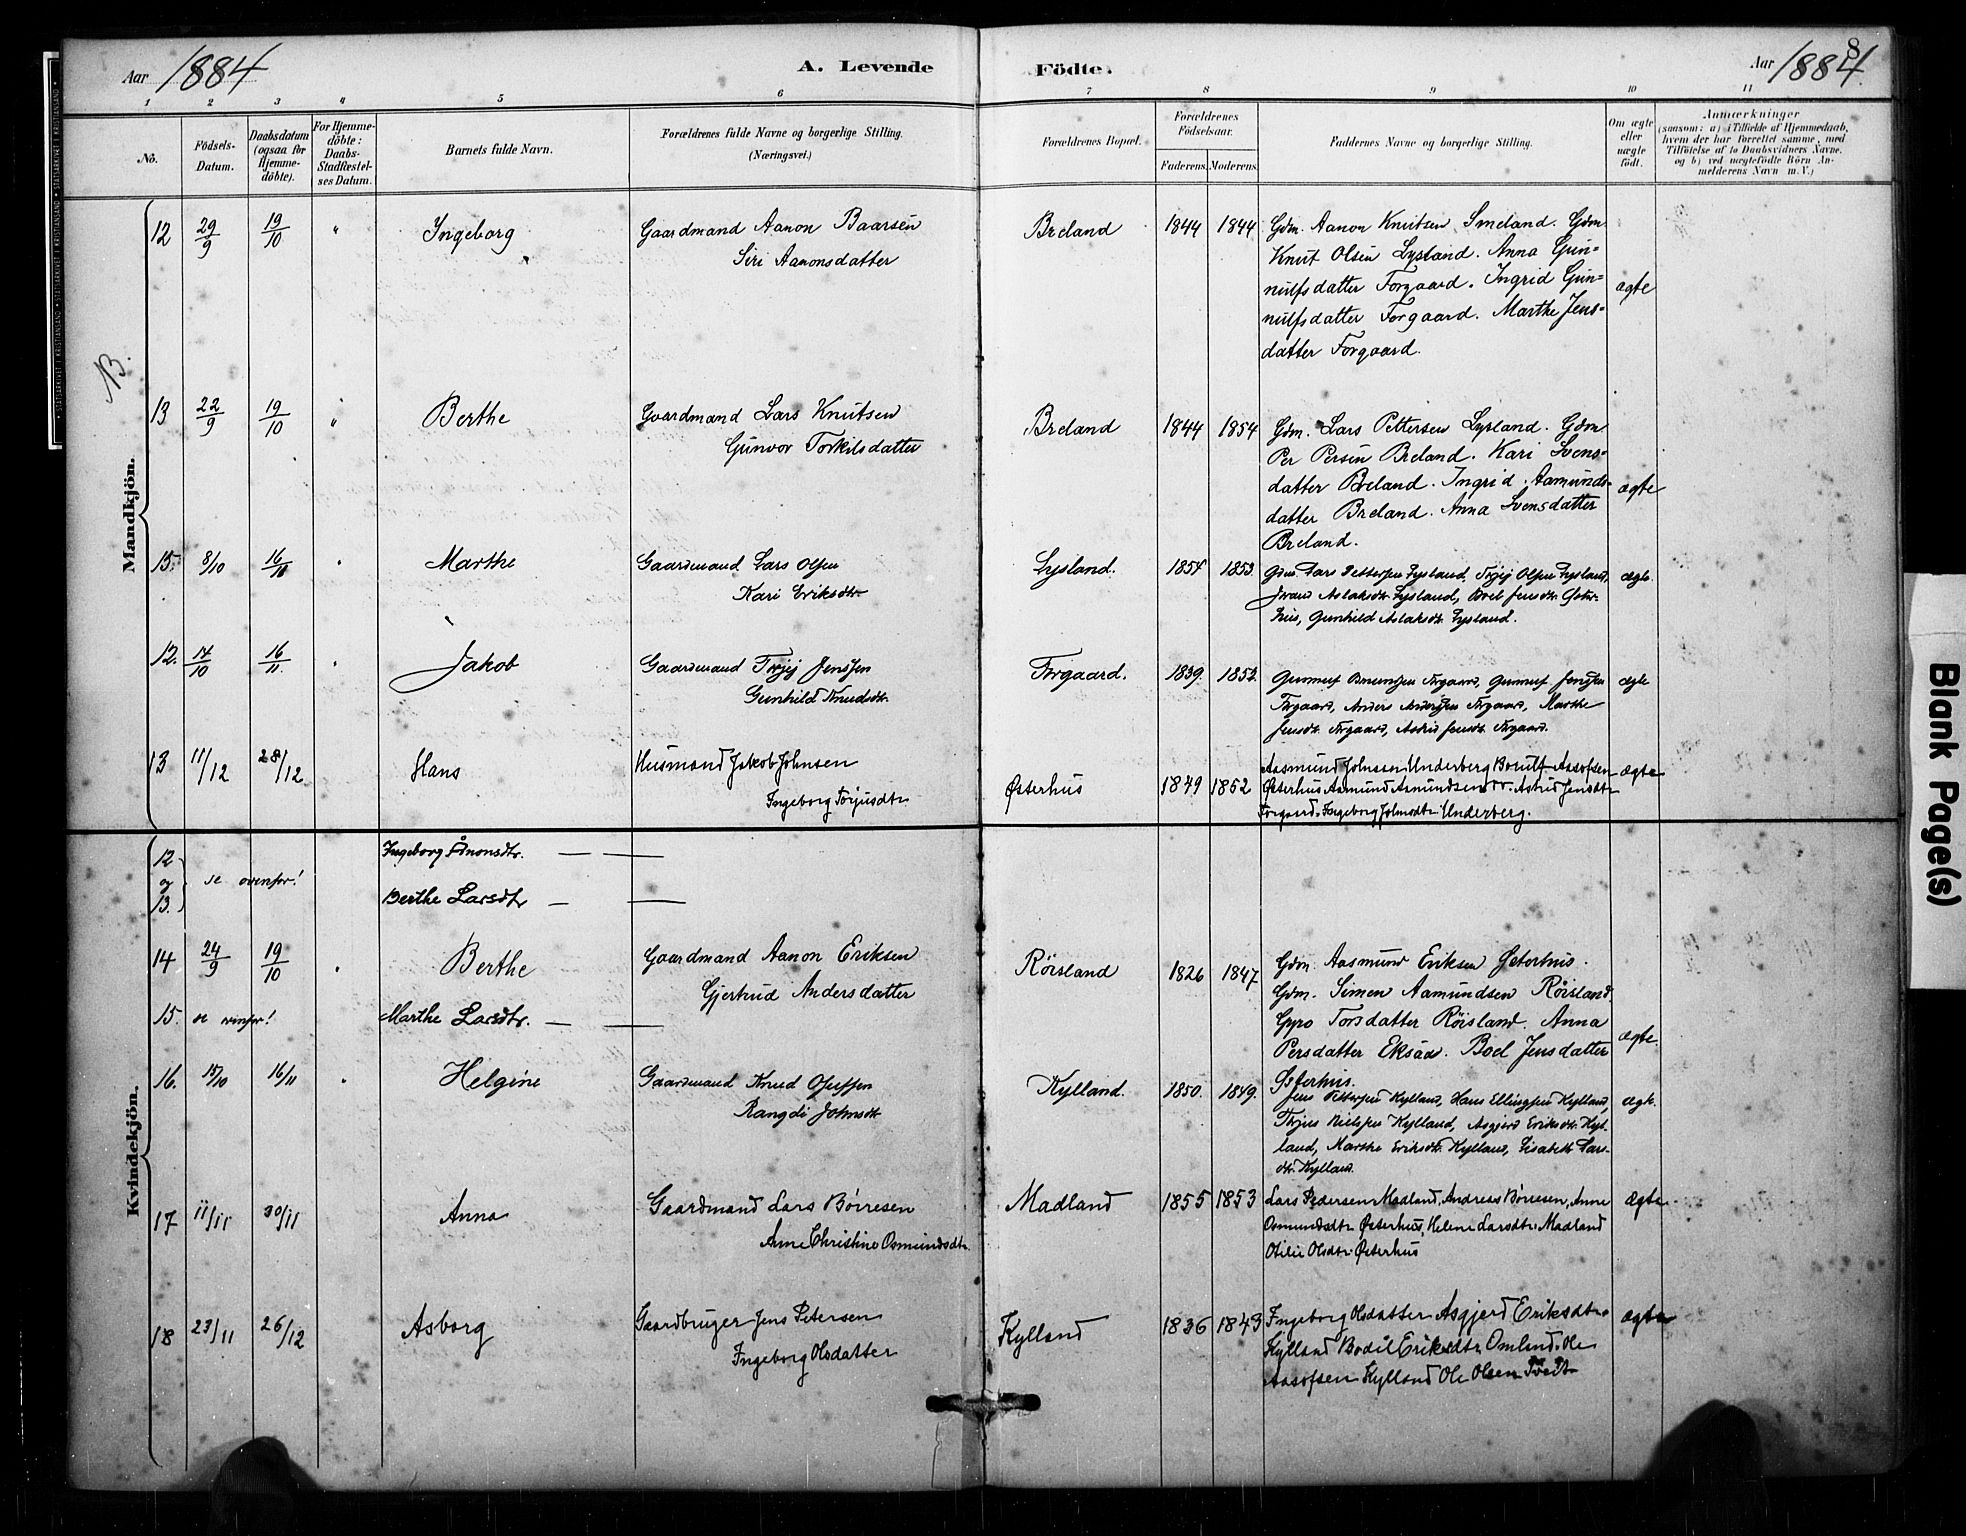 Aar 1884
A. Levende Födte.
Aar 1884.
8
1 2 3 4 5 6 7 8 9 10 11
No.
Födsels-Datum.
Daabsdatum (ogsaa for Hjemme-döbte).
For Hjemme-döbte: Daabs-Stadfæstel-ses Datum.
Barnets fulde Navn.
Forældrenes fulde Navne og borgerlige Stilling. (Næringsvei.)
Forældrenes Bopæl.
Forældrenes Födselsaar.
Faderens. Moderens.
Faddernes Navne og borgerlige Stilling.
Om ægte eller uægte födt.
Anmærkninger
(saasom: a) i Tilfælde af Hjemmedaab, hvem der har forrettet samme, med Tilföielse af to Daabsvidners Navne. og b) ved uægtefödte Börn Anmelderens Navn m. V.)
NB.
Mandkjön.
12 29/9 19/10 " Ingeborg Gaardmand Aanon Baarsen
Siri Aanonsdatter
Breland 1844 1844 Gdm. Aanon Knutsen Smeland. Gdm
Knut Olsen Lysland. Anna Gun=
nulfsdatter Forgaard. Ingrid Gun=
nulfsdatter Forgaard. Marthe Jens=
datter Forgaard.
ægte
13 22/9 19/10 " Berthe Gaardmand Lars Knutsen
Gunvor Torkilsdatter
Breland 1844 1854 Gdm. Lars Pettersen Lysland. Gdm
Per Persen Breland. Kari Svens=
datter Breland. Ingrid Aamunds=
datter Breland. Anna Svensdatter
Breland.
ægte
15. 8/10 16/11 " Marthe Gaardmand Lars Olsen
Kari Eriksdtr.
Lysland. 1854 1853. Gdm. Lars Pettersen Lysland, Terjej Olsen Lysland,
Aslaksdtr. Lysland, Boel Jensdtr. Øster-
hus, Gunhild Aslaksdtr. Lysland.
ægte.
12. 14/10 16/11. " Jakob Gaardmand Terjej Jensen
Gunhild Knudsdtr.
Forgaard. 1839. 1852. Gunnuf Forgaard, Gunnuf Jensen
Forgaard, Anders Andersen Forgaard, Marthe
Jensdtr. Forgaard, Astrid Jensdtr. Forgaard.
ægte
13 11/12 28/12 Hans Husmand Jakob Johnsen
Ingeborg Torjusdtr.
Østerhus 1849 1852 Aasmund Johnsen Underberg Aasofsen
Østerhus Aamund Aamundsen Astrid Jensdtr.
Forgaard. Ingeborg Johnsdtr. Underberg.
ægte
Kvindekjön.
12 og 13. se ovenfor! Ingeborg Ånonsdtr. — —
Berthe Larsdtr. — —
14 24/9 19/10 " Berthe Gaardmand Aanon Eriksen
Gjertrud Andersdatter
Röisland 1826 1847 Gdm. Aasmund Eriksen Østerhus.
Gdm. Simen Aamundsen Röisland
Gyro Torsdatter Röisland. Anna
Persdatter Eksaa. Boel Jensdatter
Østerhus.
ægte.
15. se ovenfor! Marthe Larsdtr. — —
16. 15/10 16/11 " Helgine Gaardmand Knud
Rangdi Johnsdtr
Kylland. 1850. 1849. Jens Pettersen Kylland, Hans Ellingsen Kylland,
Terjus Nielsen Kylland, Asgjerd Eriksdtr. Kyl-
land, Marthe Eriksdtr. Kylland, Lisabeth Lars-
dtr. Kylland.
ægte.
17 11/11 30/11 Anna Gaardmand Lars Börresen
Anne Christine Osmundsdtr.
Madland 1855 1853 Lars Pedersen Madland, Andreas Börresen, Anne
Osmundsdtr. Østerhus, Helene Larsdtr. Madland
Otilie Olsdtr. Østerhus
ægte
18 23/11 26/12 Asborg Gaardbruger Jens Petersen
Ingeborg Olsdatter
Kylland 1836 1843 Ingeborg Olsdatter Asgjerd Eriksdtr.
Kylland Bodil Eriksdtr. Omland. Ole
Aasofsen Kylland Ole Olsen Tveit
ægte
Blank Page(s)
STATSARKIVET I KRISTIANSAND • STATSARKIVET I KRISTIANSAND • STATSARKIVET I KRISTIANSAND